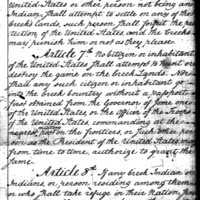 United States or other person not being an
Indian, shall attempt to settle on any of the
Creek Lands, such person shall forfeit the pro-
tection of the United States, and the Creeks
may punish him or not as they please.
Article 7th. No citizen or inhabitant
of the United States shall attempt to hunt or
destroy the game on the Creek Lands:
shall any such citizen or inhabitant go
into the Creek Country, without a passport
first obtained from the Governor of some one of
the United States, or the Officer of the
of the United States, commanding at the
nearest military post on the frontiers, or such other person
as the President of the United States may
from time to time, authorize to grant the
same.
Article 8th. If any Creek Indian or
Indians, or person residing among them
or who shall take refuge in their Nation,